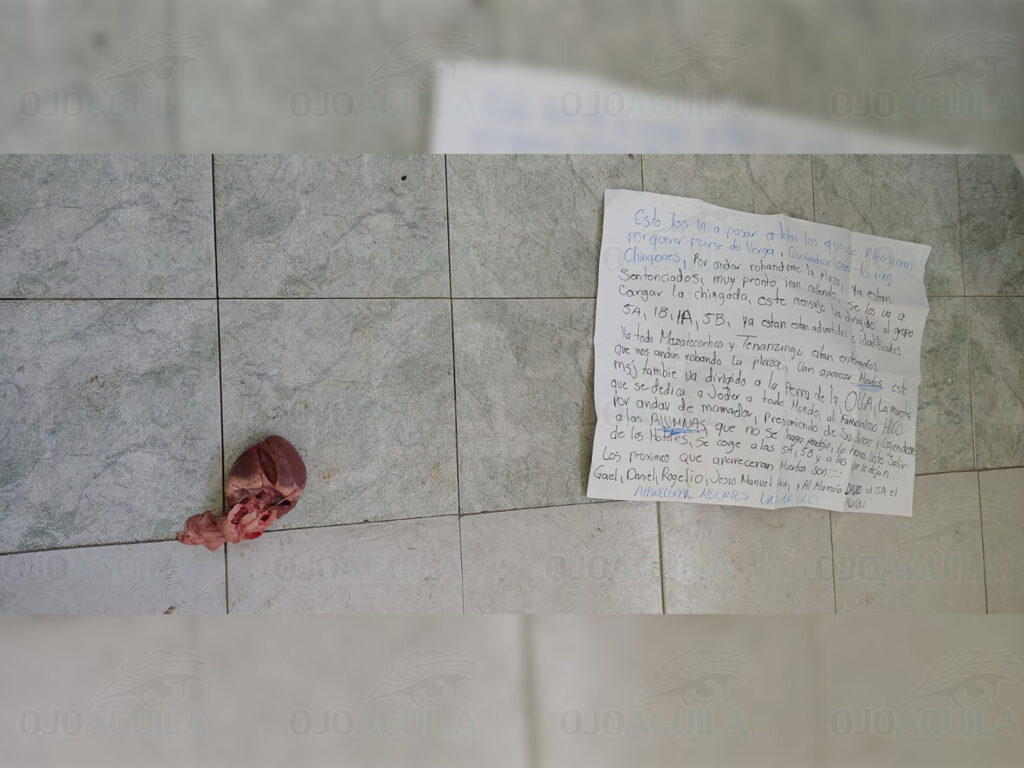 Esto les va a pasar a todos los que se
por querer pasarse de verga, los muy
Chingones, Por andar robandome la plaza, Ya estan
Sentenciados, muy pronto iran callendo, se los va a
Cargar la chingada, este mensaje va dirigido al grupo
5A, 1B, 1A, 5B, ya estan estan advertidos e identificados
Ya todo Mazatecochco y Tenanzingo estan enterados
que nos andan robando la plaza, Van aparecer este
msj tambie va dirigido a la Perra de la OLGA, La
que se dedica a Joder a todo Mundo, al HUGO
por andar de mamador, Presumiendo de su
a las ALUMNAS que no se haga pendejo, lo hemos visto Salir
de los Hoteles, Se coge a las 5A, 5B y a las que se dejen...
Los proximos que apareceran Muertos son:...
Gael, Daniel, Rogelio, Jesus Manuel y Al Mamón DAVID el 5A el
APARECERAN MUERTOS
OJOAGUILA
OJOAGUILA
OJOAGUILA
OJOAGUILA
OJOAGUILA
OJOAGUILA
OJOAGUILA
OJOAGUILA